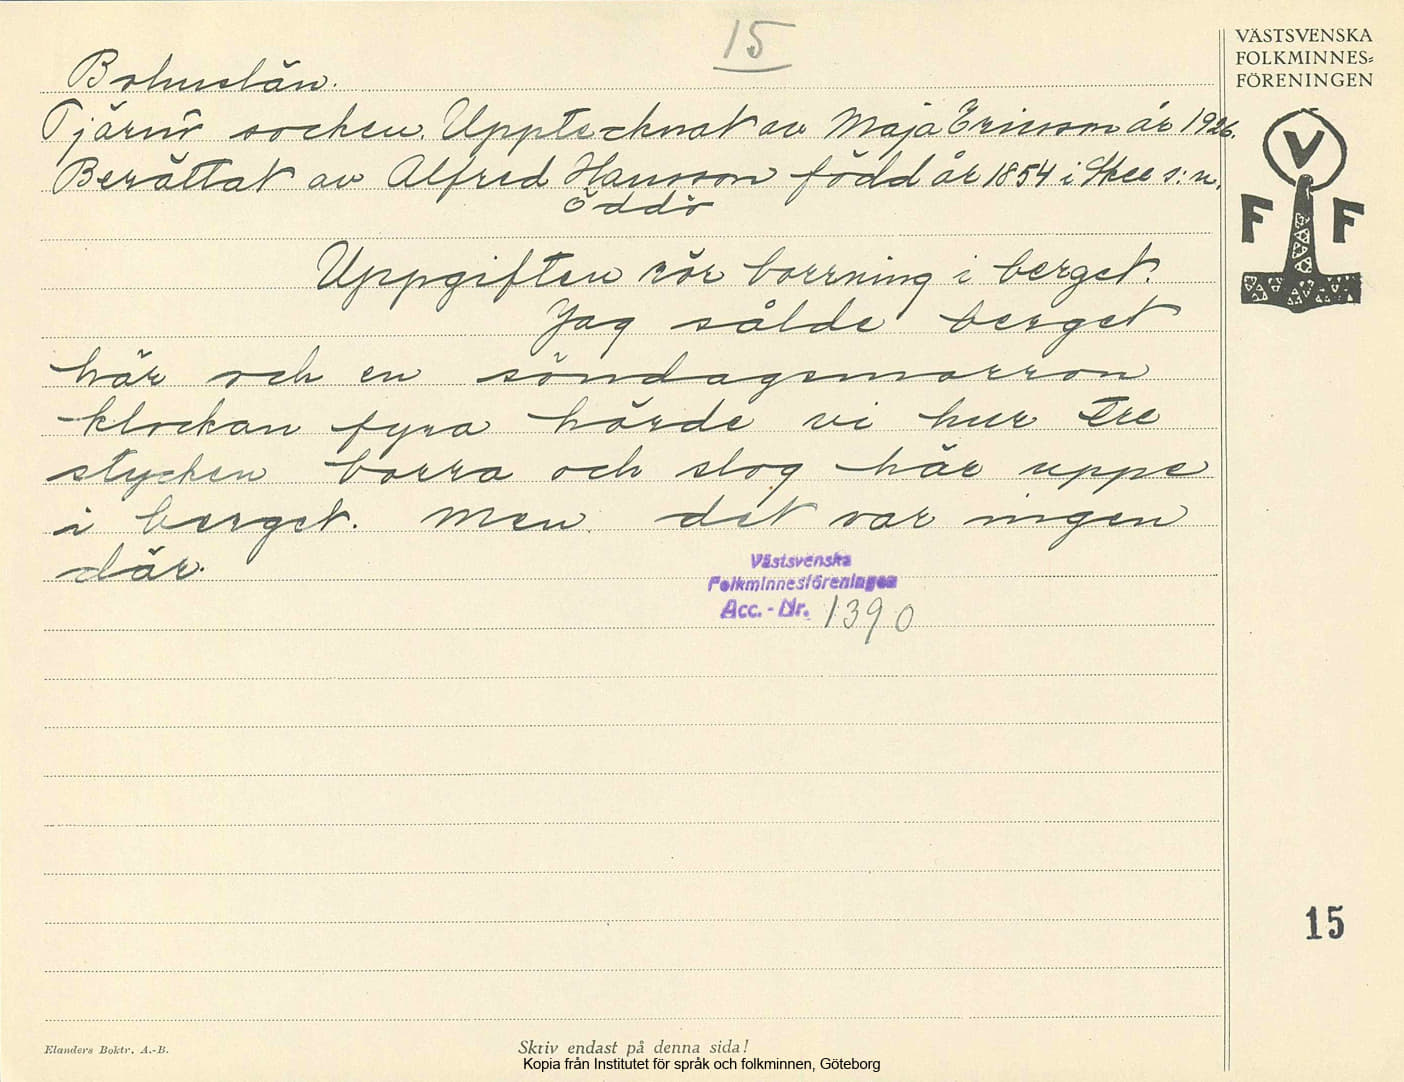 15
VÄSTSVENSKA
FOLKMINNES=
FÖRENINGEN
Bohuslän.
Tjärnö socken. Upptecknat av Maja Ericson år 1926.
Berättat av Alfred Hansson född år 1854 i Skee s:n.
Öddö
V
F F
Uppgiften rör borrning i berget.
Jag sålde berget
här och en söndagsmorron
klockan fyra hörde vi hur tre
stycken borra och slog här uppe
i berget. Men det var ingen
där.
Västsvenska
Folkminnesföreningen
Acc. - Nr. 1390
15
Elanders Boktr. A.-B.
Skriv endast på denna sida!
Kopia från Institutet för språk och folkminnen, Göteborg